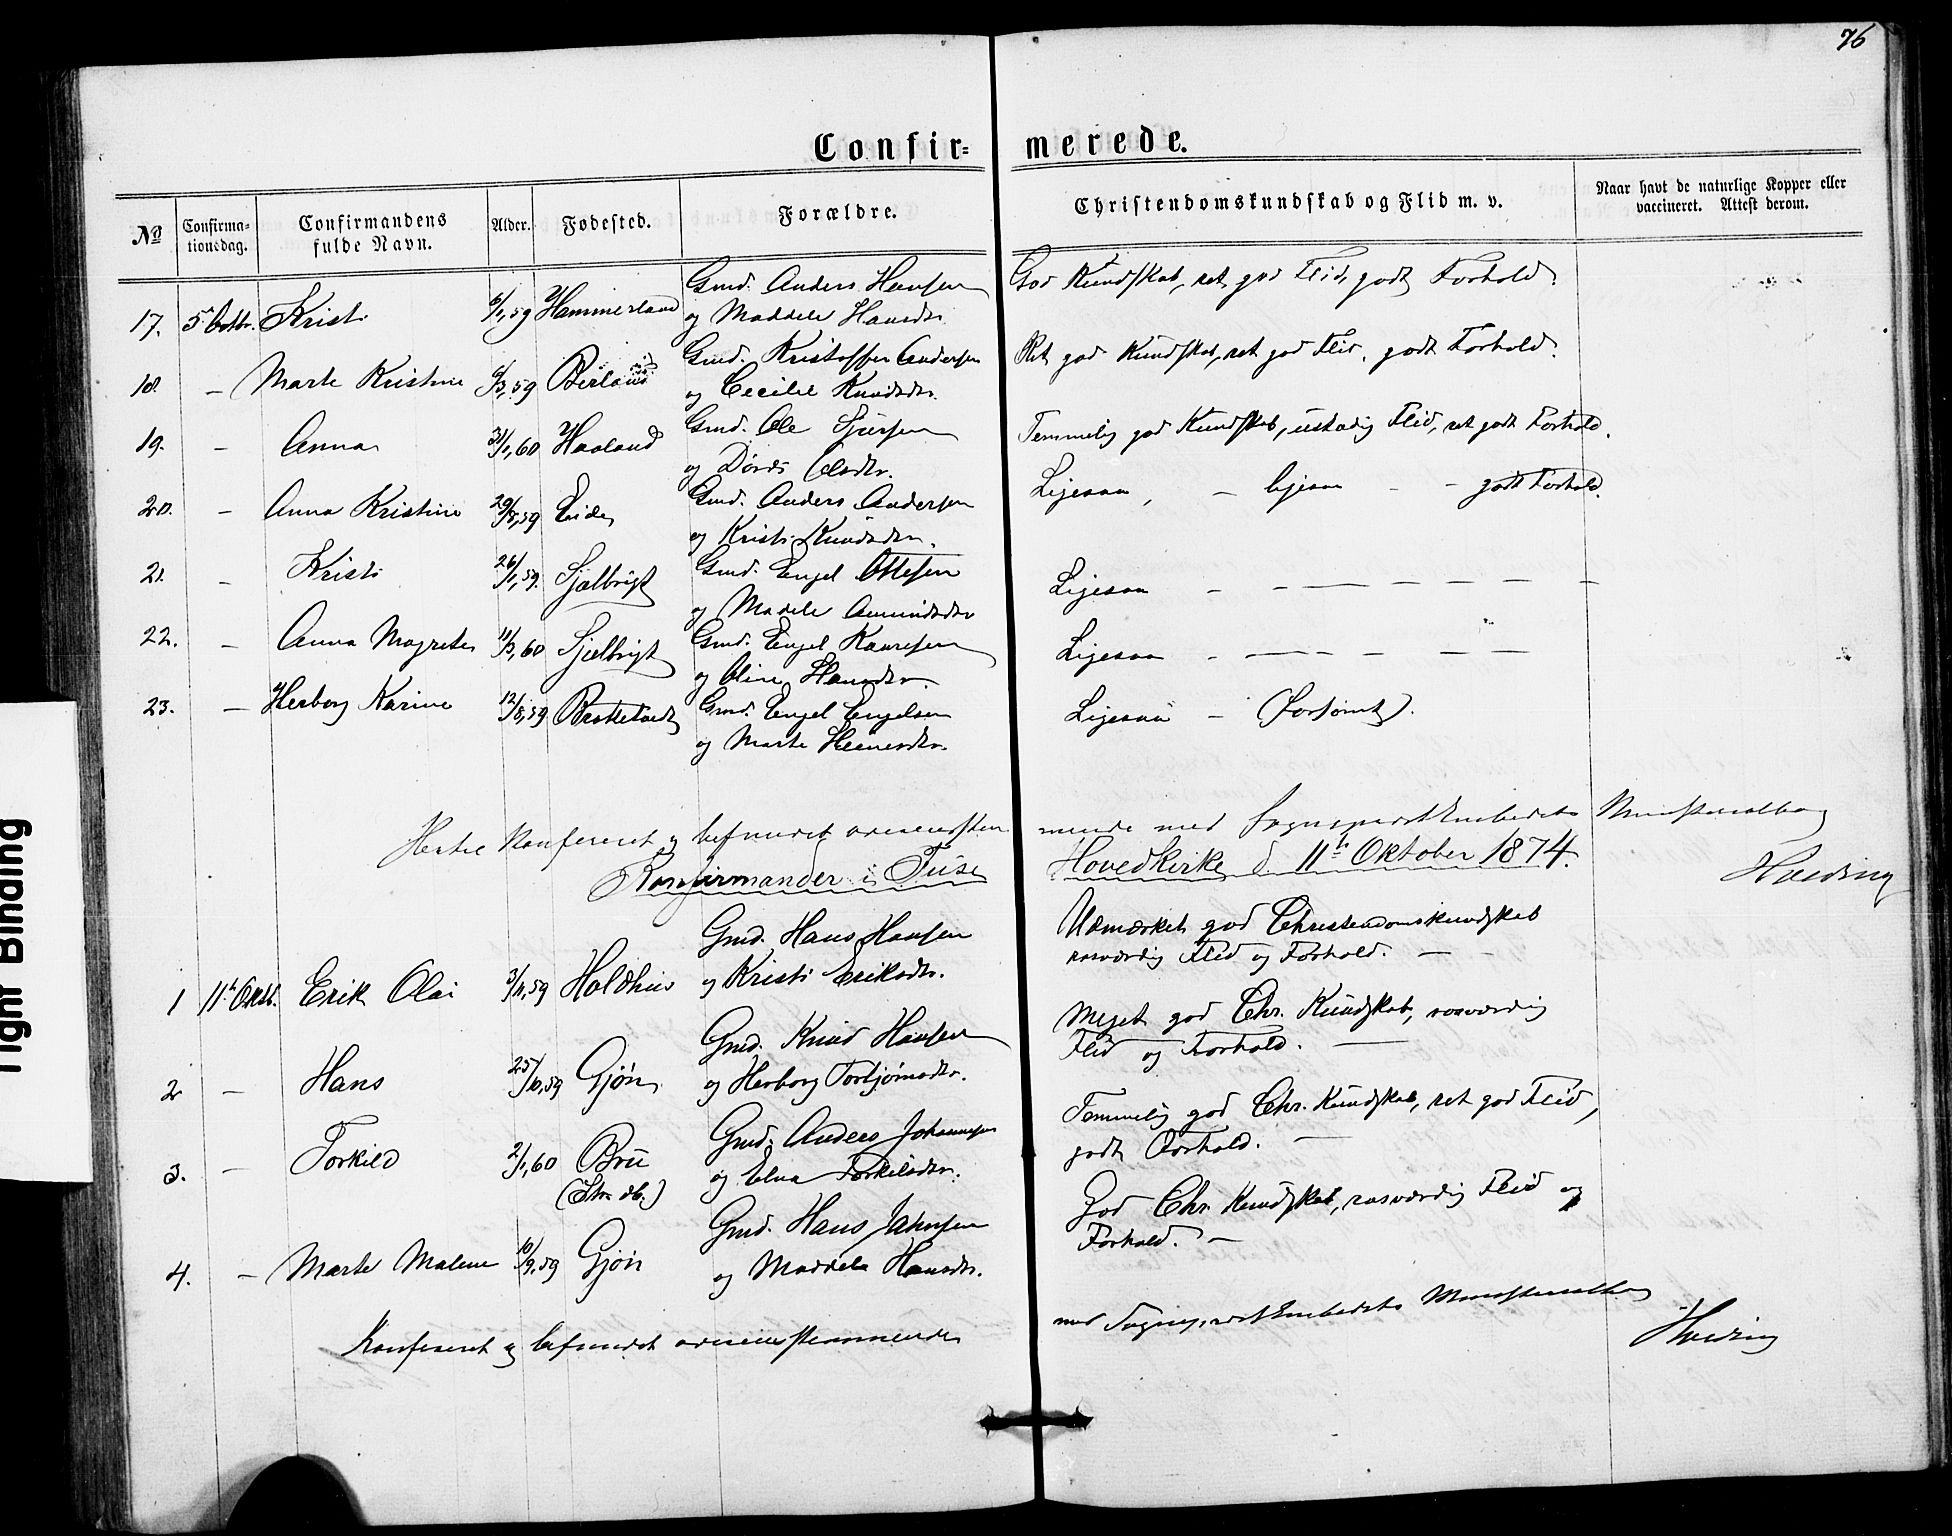 76
Confir- merede.
No Confirmationsdag. Confirmandens fulde Navn. Alder. Fødested. Forældre. Christendomskundskab og Flid m. v. Naar havt de naturlige Kopper eller vaccineret. Attest derom.
17. 5 Octbr. Kristi 6/1,59 Hammersland Gmd. Anders Hansen God Kundskab, ret god Flid, godt Forhold
og Maddele Hansdtr.
18. — Marte Kristine 6/3,59 Berland Gmd. Kristoffer Andersen Ret god Kundskab, ret god Flid, godt Forhold.
og Cecilie Knudsdtr.
19. — Anna 31/1,60 Haaland Gmd. Ole Sjursen Temmelig god Kundskab, ustadig Flid, ret godt Forhold.
og Dorde Olsdtr.
20. — Anna Kristine 29/8,59 Eide Gmd. Anders Andersen Ligesaa, — ligesaa — — godt Forhold.
og Kristi Knudsdtr.
21. — Kristi 26/1,59. Sjælbrigt Gmd. Engel Ottesen Ligesaa — — — — — — —
og Madele Amundsdtr
22. — Anna Magrete 11/3,60 Sjælbrigt Gmd. Engel Hansen Ligesaa — — — — — —
og Oline Hansdtr.
23. — Herborg Karine 12/8,59 Brattetveit Gmd. Engel Engelsen Ligesaa — (Forsømt).
og Marte Heinesdtr.
Hertil Konfereret og befundet overensstemmende med Sogneprestembedets Ministerialbog
Hveding
Konfirmander i Fuse Hovedkirke d. 11te Oktober 1874.
Gmd. Hans Hansen Udmærket god Christendomskundskab
1 11te Oktb. Erik Olai 3/11,59 Holdhus og Kristi Eriksdtr. rosværdig Flid og Forhold. —
Gmd. Knud Hansen Meget god Chr. Kundskab, rosværdig
2 — Hans 25/10,59 Gjøn og Herborg Torbjørnsdtr. Flid og Forhold. —
Gmd. Anders Johannesen Temmelig god Chr. Kundskab, ret god Flid,
3. — Torkild 2/1,60 Bru og Elna Torkildsdtr. godt Forhold. —
(Str. db.)
Gmd. Hans Jahnsen God Chr. Kundskab, rosværdig Flid og
4. — Marte Malene 10/9,59 Gjøn og Maddela Hansdtr. Forhold. —
Konfereret og befundet overensstemmende med Sogneprestembedets Ministerialbog
Hveding
Tight Binding